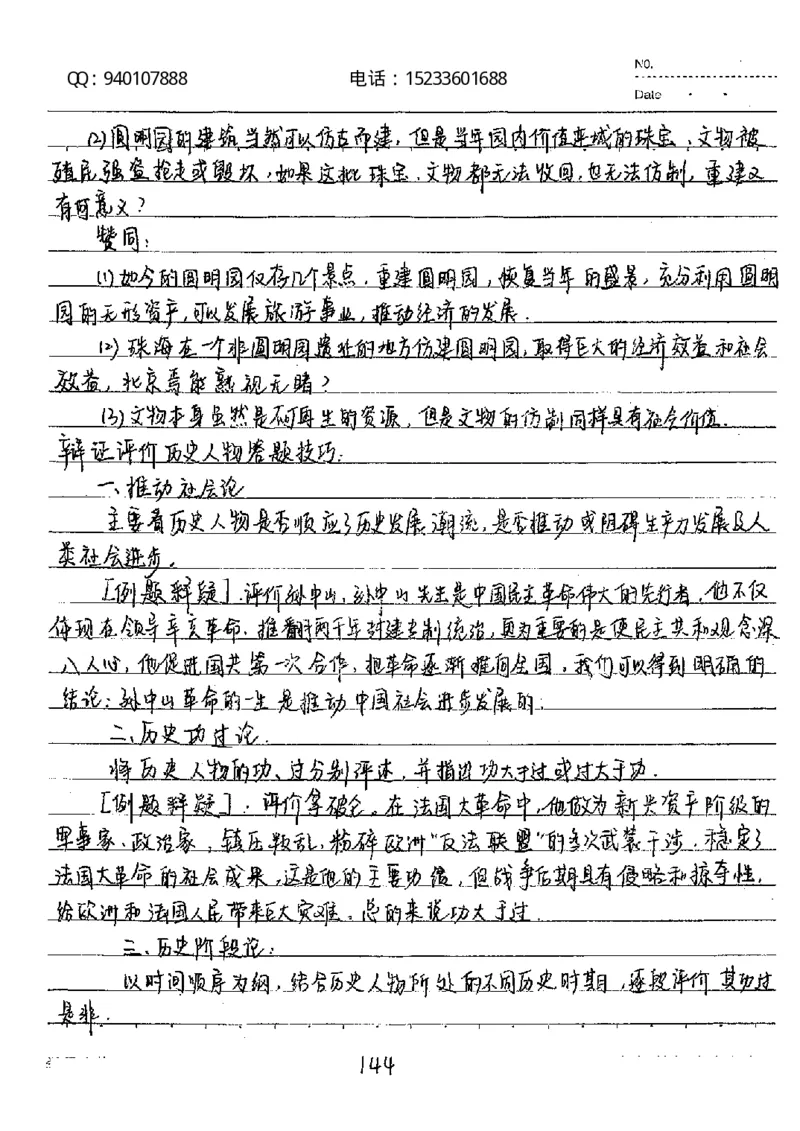 QQ：940107888 电话：15233601688 NO.
Date
(2)圆明园的建筑当然可以仿古而建，但是当年园内价值连城的珠宝、文物被
殖民强盗抢走或毁坏，如果这批珠宝、文物都无法收回，也无法仿制，重建又
有何意义？
赞同：
(1)如今的圆明园仅存几个景点，重建圆明园，恢复当年的盛景，充分利用圆明
园的无形资产，可以发展旅游事业，推动经济的发展．
(2)珠海在一个非圆明园遗址的地方仿建圆明园，取得巨大的经济效益和社会
效益，北京焉能熟视无睹？
(3)文物本身虽然是不可再生的资源，但是文物的仿制同样具有社会价值．
辩证评价历史人物答题技巧：
一、推动社会论
主要看历史人物是否顺应了历史发展潮流，是否推动或阻碍生产力发展及人
类社会进步。
［例题释疑］．评价孙中山，孙中山先生是中国民主革命伟大的先行者，他不仅
体现在领导辛亥革命，推翻两千年封建专制统治，更为重要的是使民主共和观念深
入人心，他促进国共第一次合作，把革命逐渐推向全国，我们可以得到明确的
结论：孙中山革命的一生是推动中国社会进步发展的．
二、历史功过论．
将历史人物的功、过分别评述，并指出功大于过或过大于功．
［例题释疑］：评价拿破仑。在法国大革命中，他做为新兴资产阶级的
军事家、政治家，镇压叛乱，粉碎欧洲“反法联盟”的多次武装干涉．稳定了
法国大革命的社会成果，这是他的主要功绩，但战争后期具有侵略和掠夺性，
给欧洲和法国人民带来巨大灾难。总的来说功大于过．
三、历史阶段论：
以时间顺序为纲，结合历史人物所处的不同历史时期，逐段评价其功过
是非．
144